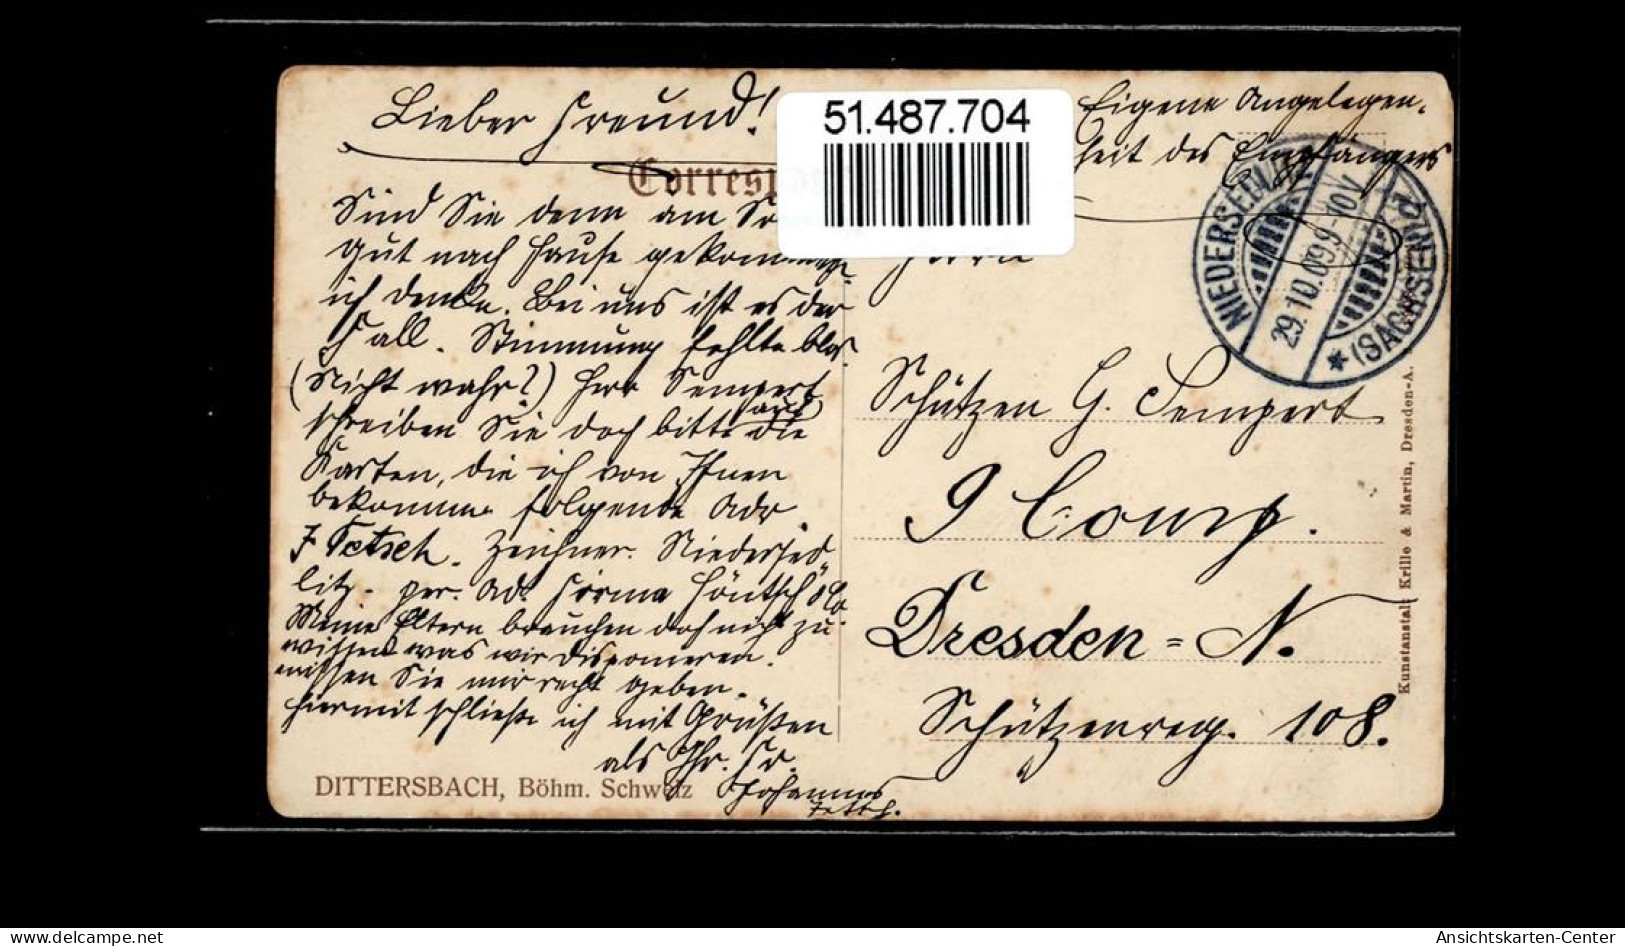 Lieber Freund!
51.487.704
Eigene Angelegen-
heit des Empfängers
Corresp
Sind Sie denn am So
gut nach Hause gekommen,
ich denke. Bei uns ist es der
Fall. Stimmung fehlte blos
(Nicht wahr?) Herr Sempert
schreiben Sie doch bitte auf die
Karten, die ich von Ihnen
bekomme folgende Adr.
J Tetsch. Zeichner. Niedersed-
litz. per. Ad. Firma Höntsch & Co
Meine Eltern brauchen doch nicht zu
wissen was wir disponieren.
müssen Sie mir recht geben.
Hiermit schließe ich mit Grüßen
als Ihr. Fr.
Johannes
Tetsch.
DITTERSBACH, Böhm. Schweiz
NIEDERSEDLITZ
29.10.09.9-10V.
* (SACHSEN)
Herrn
Schützen G. Sempert
9 Comp.
Dresden = N.
Schützenreg. 108.
Kunstanstalt Krille & Martin, Dresden-A.
www.delcampe.net
Ansichtskarten-Center